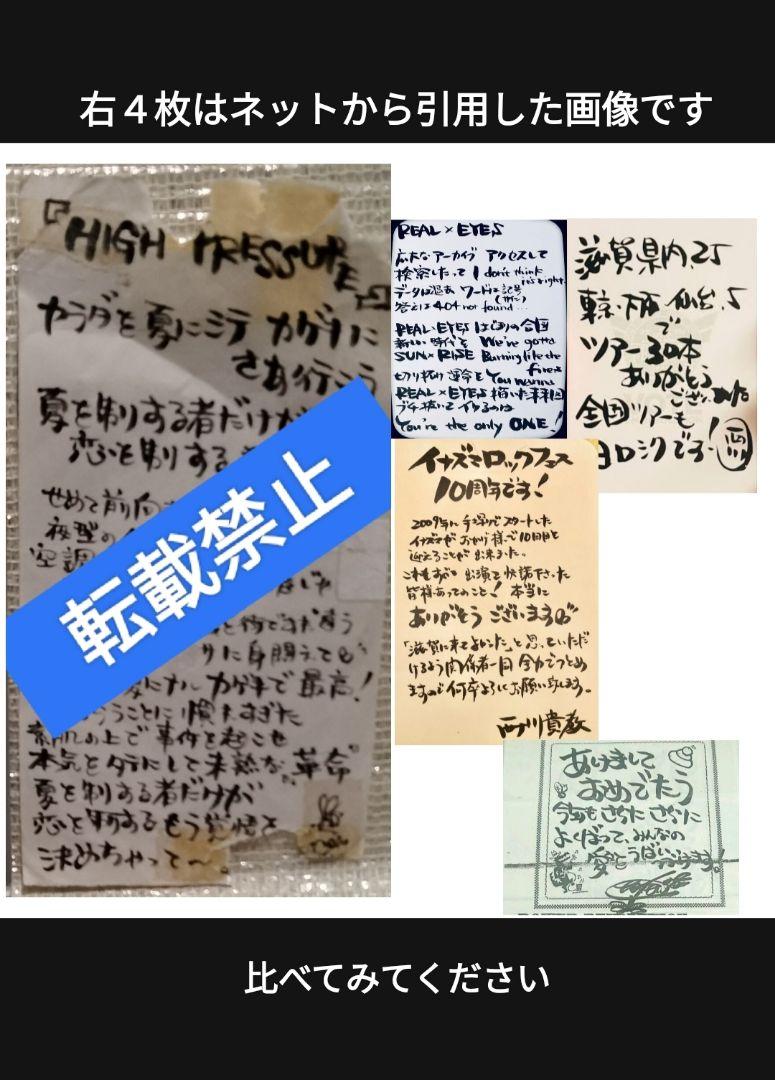 右４枚はネットから引用した画像です
『HIGH PRESSURE』
カラダを夏にシテ カゲキに
さあ行こう
夏を制する者だけが
恋を制する
せめて前向
夜型の
空調
転載禁止
夏にナル カゲキで最高!
うことに慣れすぎた
素肌の上で事件を起こせ
本気をタテにして未熟な"革命"
夏を制する者だけが
恋を制するもう覚悟を
決めちゃって〜。
REAL×EYES
広大なアーカイブ アクセスして
検索したって I don't think
it's right
データは過去 ワードは記号
答えは404 not found...
REAL×EYES はじまりの合図
新しい時代を We're gotta
SUN×RISE Burning like the
fire
切り拓け運命を You wanna
REAL×EYES 描いた未来図
ブチ抜いてイケるのは
You're the only ONE!
滋賀県内.25
東京.大阪.仙台.5
で
ツアー30本
ありがとう
ござい
全国ツアーも
ヨロシクです!
イナズマロックフェス
10周年です!
2009年に手探りでスタートした
イナズマがおかげ様で10回目を
迎えることが出来ました。
これもすべて出演を快諾下さった
皆様あってのこと! 本当に
ありがとうございます
「滋賀に来てよかった」と思っていただ
けるよう関係者一同全力でつとめ
ますので何卒よろしくお願い致します。
西川貴教
あけまして
おめでとう
今年もさらにさらに
よくばって、みんなの
愛をうばい
ます!
比べてみてください